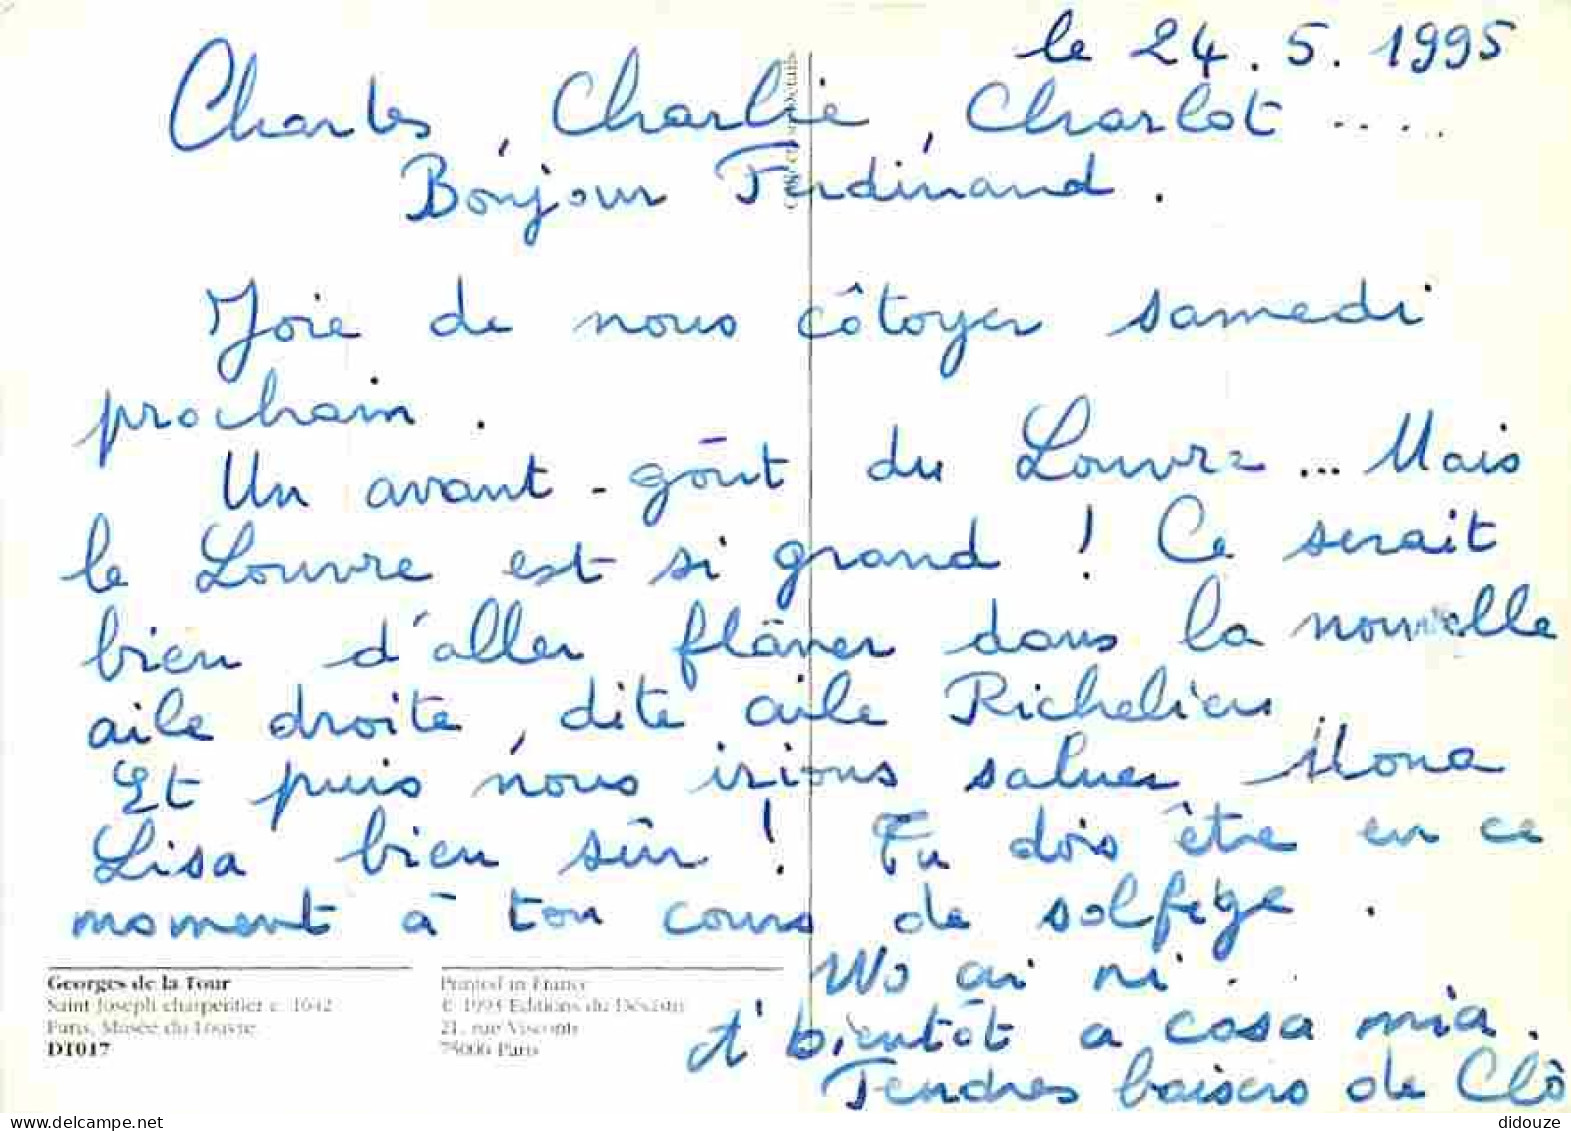 le 24.5.1995
Charles, Charlie, Charlot .....
Bonjour Ferdinand.
Joie de nous côtoyer samedi
prochain.
Un avant-goût du Louvre... Mais
le Louvre est si grand ! Ce serait
bien d'aller flâner dans la nouvelle
aile droite, dite aile Richelieu.
Et puis nous irions saluer Mona
Lisa bien sûr ! Tu dois être en ce
moment à ton cours de solfège.
Wo ai ni.
A bientôt a casa mia.
Tendres baisers de Clô
Georges de la Tour
Saint Joseph charpentier c. 1642
Paris, Musée du Louvre
DT017
Printed in France
© 1993 Editions du Désastre
21, rue Visconti
75006 Paris
didouze